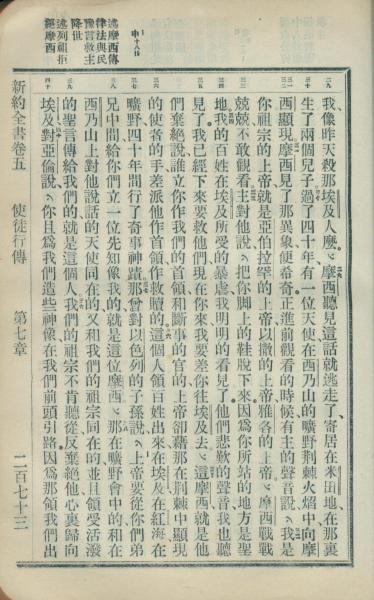 述摩西傳
律法與民
豫言救主
降世
述列祖拒
絕摩西
申十八15
我像昨天殺那埃及人麽、摩西聽見這話就逃走了寄居在米田地在那裏
生了兩個兒子過了四十年有一位天使在西乃山的曠野荆棘火焰中向摩
西顯現摩西見了那異象便希奇正進前觀看的時候有主的聲音說我是
你祖宗的上帝就是亞伯拉罕的上帝以撒的上帝雅各的上帝摩西戰戰
兢兢不敢觀看主對他說把你脚上的鞋脫下來因爲你所站的地方是聖
地我的百姓在埃及所受的暴虐我明明的看見了他們悲歎的聲音我也聽
見了我已經下來要救他們現在你來我要差你往埃及去這摩西就是他
們棄絕說誰立你作我們的首領和斷事的官的上帝卻藉那在荆棘中顯現
的使者的手差派他作首領作救贖的這個人領百姓出來在埃及在紅海在
曠野四十年間行了奇事神蹟那曾對以色列的子孫說上帝要從你們弟
兄中間給你們立一位先知像我的就是這位摩西那在曠野會中的和在
西乃山上對他說話的天使同在的又和我們的祖宗同在的並且領受活潑
的聖言傳給我們的就是這個人我們的祖宗不肯聽從反棄絕他心裏歸向
埃及對亞倫說你且爲我們造些神像在我們前頭引路因爲那領我們出
新約全書卷五 使徒行傳 第七章 二百七十三